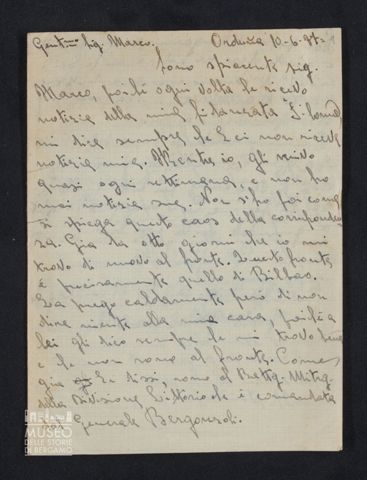 Gent.mo Sig. Marco. Orduña 10-6-37-
Sono spiacente sig.
Marco, poichè ogni volta che ricevo
notizia della mia fidanzata
mi dice sempre che Lei non riceve
notizie mie. Mentre io, gli scrivo
quasi ogni settimana, e non ho
mai notizie sue. Non si può poi come
si spiega questo caos della corrisponden
za. Già da otto giorni che io mi
trovo di nuovo al fronte. Questo fronte
è precisamente quello di Bilbao.
La prego caldamente però di non
dire niente alla mia cara, poichè a
lei gli dico sempre che mi trovo bene
e che non sono al fronte. Come
già Le dissi, sono al Battg. Mitrg.
della Divisione Littorio che è comandata
dal Generale Bergonzoli.
MUSEO
DELLE STORIE
DI BERGAMO